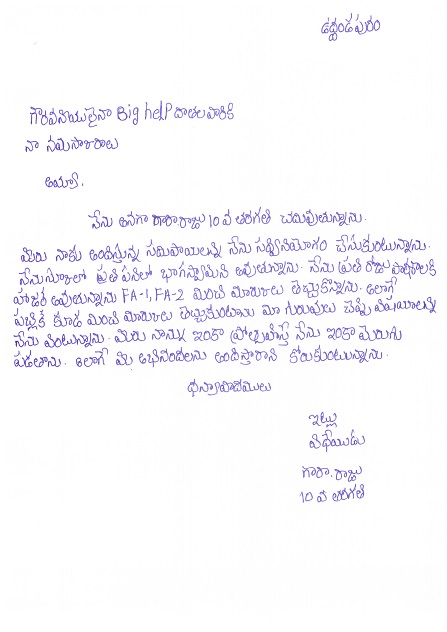 ఉద్దండపురం
గౌరవనీయులైనా Big help దాతలవారికి
నా నమస్కారాలు
అయ్యా,
నేను అనగా గారా.రాజు 10 వ తరగతి చదువుతున్నాను.
మీరు నాకు అందిస్తున్న సదుపాయాలన్ని నేను సద్వినియోగం చేసుకుంటున్నాను.
నేను స్కూల్లో ప్రతి పనిలో భాగస్వామిని అవుతున్నాను. నేను ప్రతి రోజు పాఠశాలకి
హాజరే అవుతున్నాను FA-1, FA-2 మంచి మార్కులు తెచ్చుకొన్నాను. అలాగే
పబ్లిక్ కూడ మంచి మార్కులు తెచ్చుకుంటాను మా గురువులు చెప్పే విషయాలన్ని
నేను వింటున్నాను. మీరు నాన్ను ఇంకా ప్రోత్సహిస్తే నేను ఇంకా మెరుగు
పడతాను. అలాగే మీ అభినందలను అందిస్తారాని కోరుకుంటున్నాను.
ధన్యావాదములు
ఇట్లు
విధేయుడు
గారా.రాజు
10 వ తరగతి